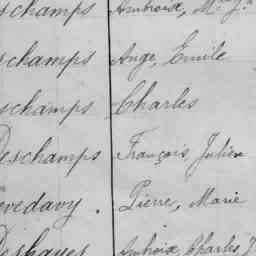 schamps Ambroise, M. J.
schamps Ange, Emile
schamps Charles
Deschamps François, Julien
evedavy . Pierre, Marie
Deshayes Ambroise, Charles J